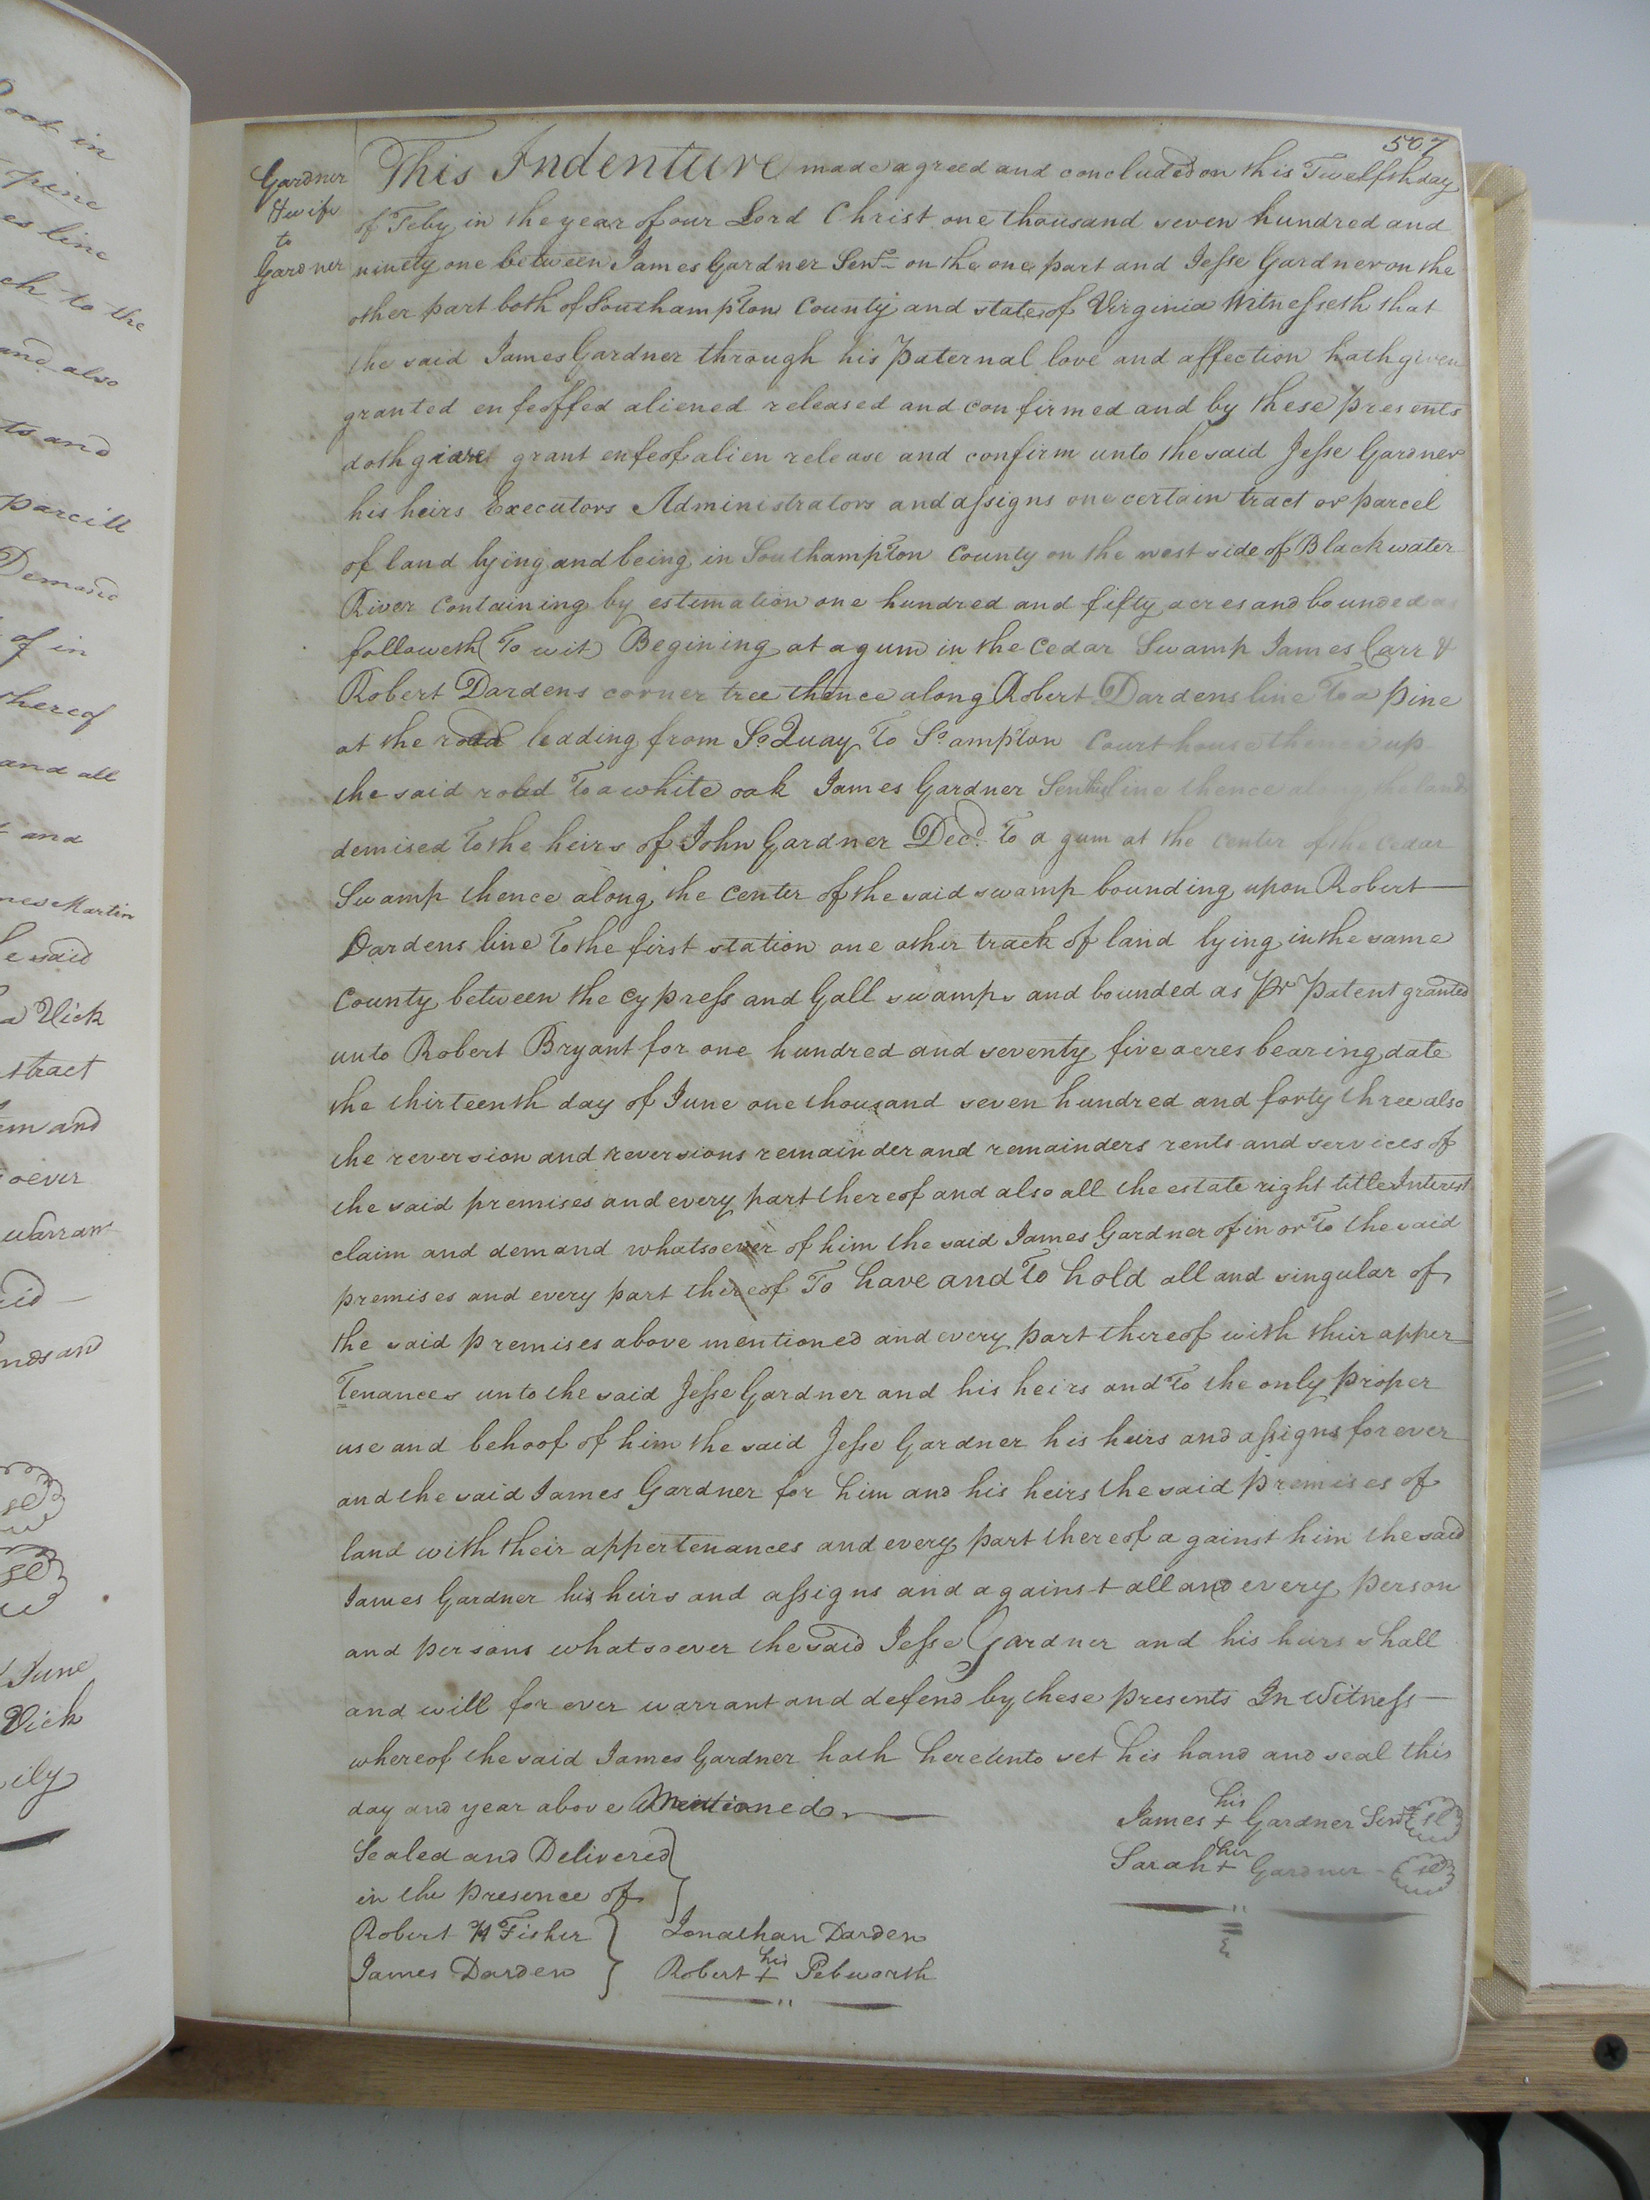 oot in
pine
es line
ch to the
and also
ts and
parcill
Demand
of in
thereof
and all
and
nes Martin
he said
a Vick
tract
em and
oever
warran
aid
nds and
se
se
June
Vick
ily
507
Gardner
& wife
to
Gardner
This Indenture made agreed and concluded on this Twelfth day
of Feby in the year of our Lord Christ one thousand seven hundred and
ninety one between James Gardner Senr on the one part and Jesse Gardner on the
other part both of Southampton County and state of Virginia Witnesseth that
the said James Gardner through his Paternal love and affection hath given
granted enfeoffed aliened released and confirmed and by these presents
doth give grant enfeof alien release and confirm unto the said Jesse Gardner
his heirs Executors Administrators and assigns one certain tract or parcel
of land lying and being in Southampton County on the west side of Blackwater
River containing by estimation one hundred and fifty acres and bounded as
followeth (To wit) Begining at a gum in the Cedar Swamp James Carr &
Robert Dardens corner tree thence along Robert Dardens line To a pine
at the road leading from So Quay To So ampton Court house thence up
the said road To a white oak James Gardner Senrs line thence along the land
demised To the heirs of John Gardner Decd. To a gum at the center of the Cedar
Swamp thence along the Center of the said swamp bounding upon Robert
Dardens line To the first station one other track of land lying in the same
County between the Cypress and Gall swamps and bounded as Pr Patent granted
unto Robert Bryant for one hundred and seventy five acres bearing date
the thirteenth day of June one thousand seven hundred and forty three also
the reversion and reversions remainder and remainders rents and services of
the said premises and every part thereof and also all the estate right title Interest
claim and demand whatsoever of him the said James Gardner of in or To the said
premises and every part thereof To have and To hold all and singular of
the said premises above mentioned and every part thereof with their apper
Tenances unto the said Jesse Gardner and his heirs and To the only proper
use and behoof of him the said Jesse Gardner his heirs and assigns for ever
and the said James Gardner for him and his heirs the said premises of
land with their appertenances and every part thereof against him the said
James Gardner his heirs and assigns and against all and every person
and persons whatsoever the said Jesse Gardner and his heirs shall
and will for ever warrant and defend by these presents In Witness
whereof the said James Gardner hath hereunto set his hand and seal this
day and year above Mentioned
his
James + Gardner Senr se
her
Sarah + Gardner - se
Sealed and Delivered
in the presence of
Robert H Fisher } Jonathan Darden
his
James Darden } Robert + Pebworth